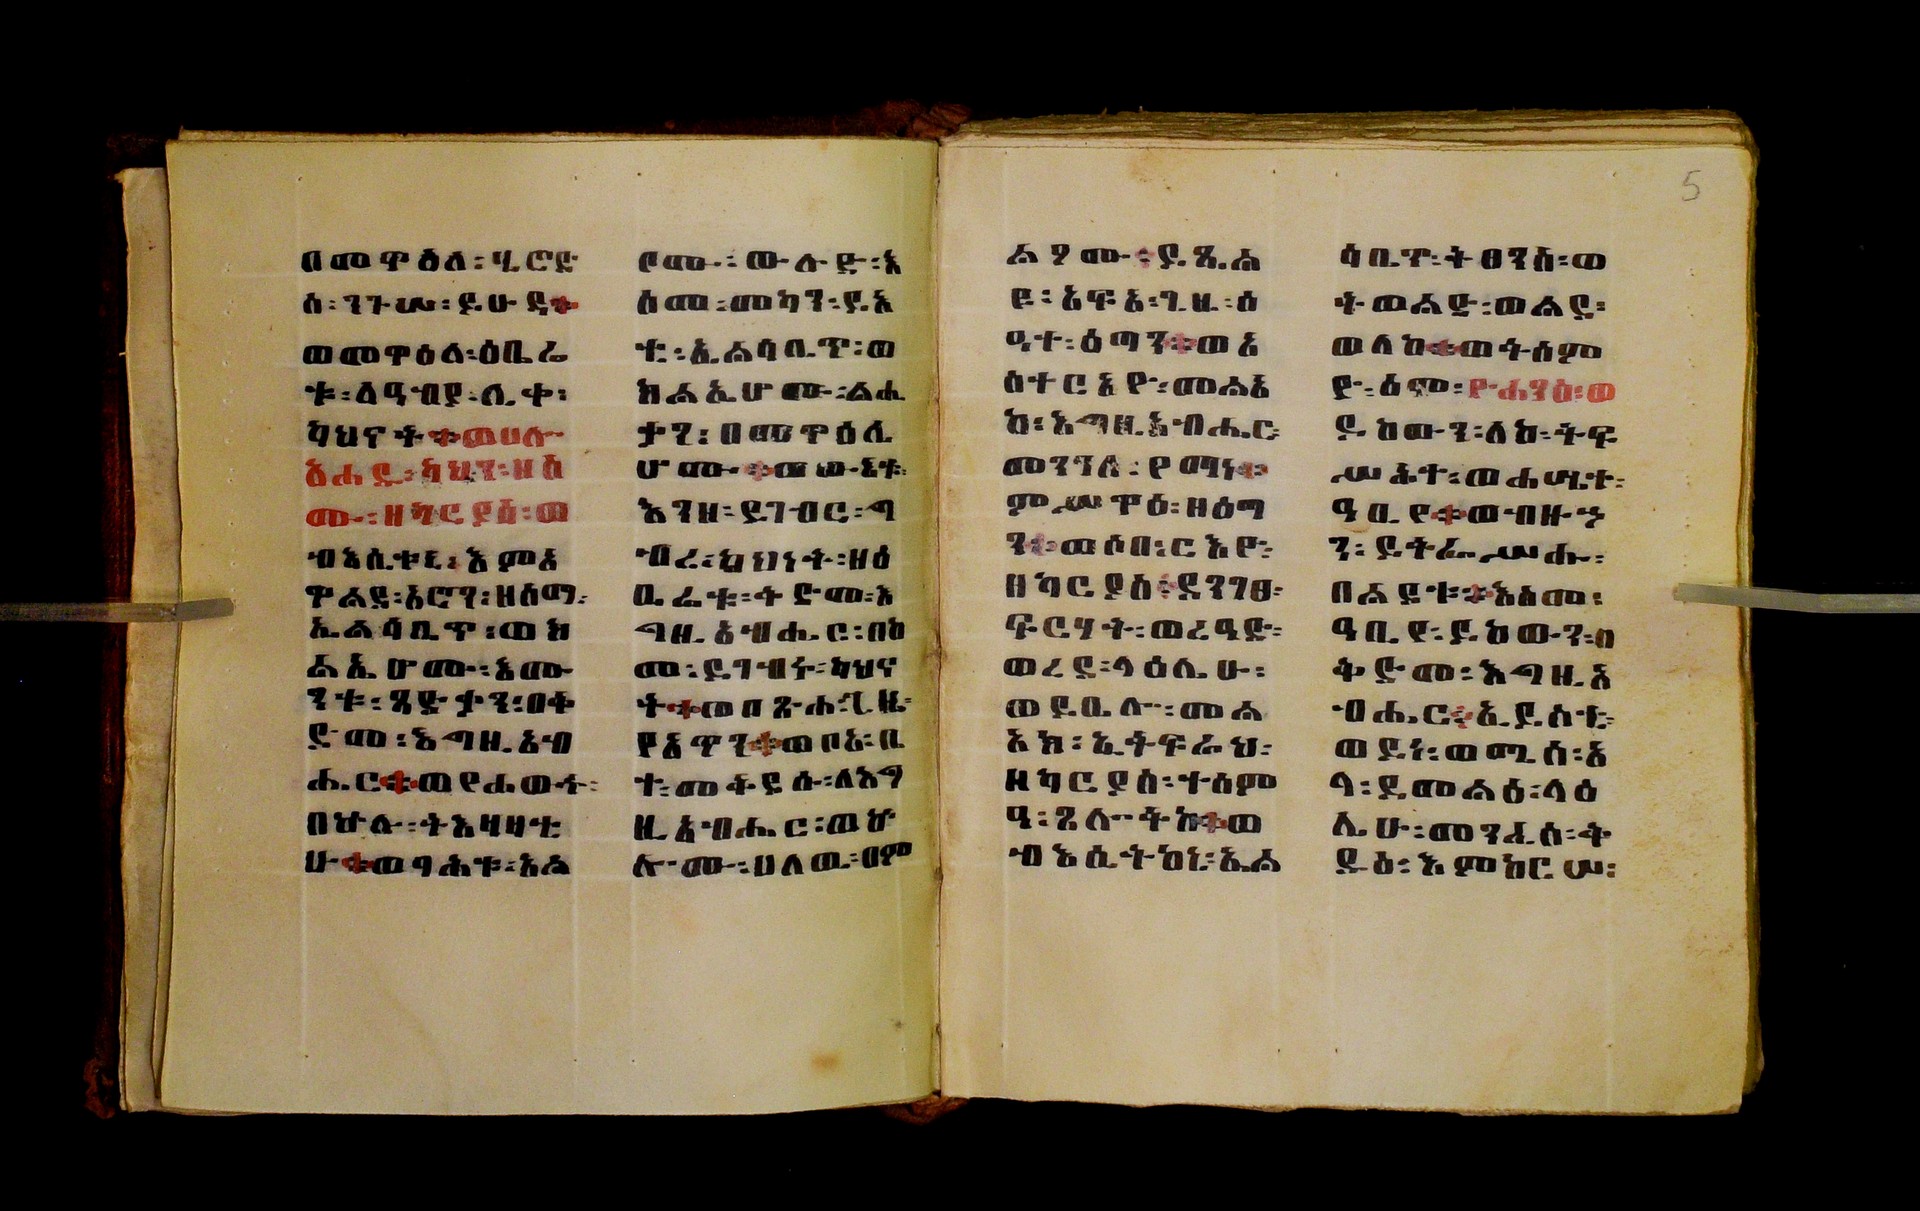 በመዋዕለ፡ሄሮድ
ስ፡ንጉሠ፡ይሁዳ።
ወመዋዕለ፡ዕቤሬ
ቱ፡ለዓብያ፡ሊቀ፡
ካህናት።ወሀሎ
አሐዱ፡ካህን፡ዘስ
ሙ፡ዘካርያስ፡ወ
ብእሲቱኒ፡እምአ
ዋልደ፡አሮን፡ዘስማ፡
ኤልሳቤጥ፡ወክ
ልኤሆሙ፡እሙ
ንቱ፡ጻድቃን፡በቅ
ድመ፡እግዚአብ
ሔር።ወየሐውሩ፡
በኵሉ፡ትእዛዛቲ
ሁ።ወባሕቱ፡አል
ቦሙ፡ውሉድ፡እ
ስመ፡መካን፡ይእ
ቲ፡ኤልሳቤጥ፡ወ
ክልኤሆሙ፡ልሒ
ቃን፡በመዋዕሊ
ሆሙ።ወውእቱ፡
እንዘ፡ይገብር፡ግ
ብረ፡ክህነት፡ዘዕ
ቤሬቱ፡ቅድመ፡እ
ግዚአብሔር፡በከ
መ፡ይገብሩ፡ካህና
ት።ወበጽሐ፡ጊዜ፡
የአጥን።ወቦአ፡ቤ
ተ፡መቅደሱ፡ለእግ
ዚአብሔር፡ወኵ
ሎሙ፡ሀለዉ፡በም
ልዖሙ።ይጼል
ዩ፡አፍአ፡ጊዜ፡ሰ
ዓተ፡ዕጣን።ወአ
ስተርአዮ፡መልአ
ከ፡እግዚአብሔር፡
መንገለ፡የማነ።
ምሥዋዕ፡ዘዕጣ
ን።ወሶበ፡ርእዮ፡
ዘካርያስ።ደንገፀ፡
ፍርሃት፡ወረዓድ፡
ወረደ፡ላዕሌሁ፡
ወይቤሎ፡መል
አክ፡ኢትፍራህ፡
ዘካርያስ፡ተሰም
ዓ፡ጸሎትከ።ወ
ብእሲትከኒ፡ኤል
ሳቤጥ፡ትፀንስ፡ወ
ትወልድ፡ወልደ፡
ወለከ።ወትሰም
ዮ፡ስሞ፡ዮሐንስ፡ወ
ይከውን፡ለከ፡ትፍ
ሥሕተ፡ወሐሤተ፡
ዓቢየ።ወብዙኃ
ን፡ይትፌሥሑ፡
በልደቱ።እስመ፡
ዓቢየ፡ይከውን፡በ
ቅድመ፡እግዚአ
ብሔር።ኢይሰቲ፡
ወይነ፡ወሜሰ፡አ
ላ፡ይመልዕ፡ላዕ
ሌሁ፡መንፈስ፡ቅ
ዱስ፡እምከርሠ፡
5